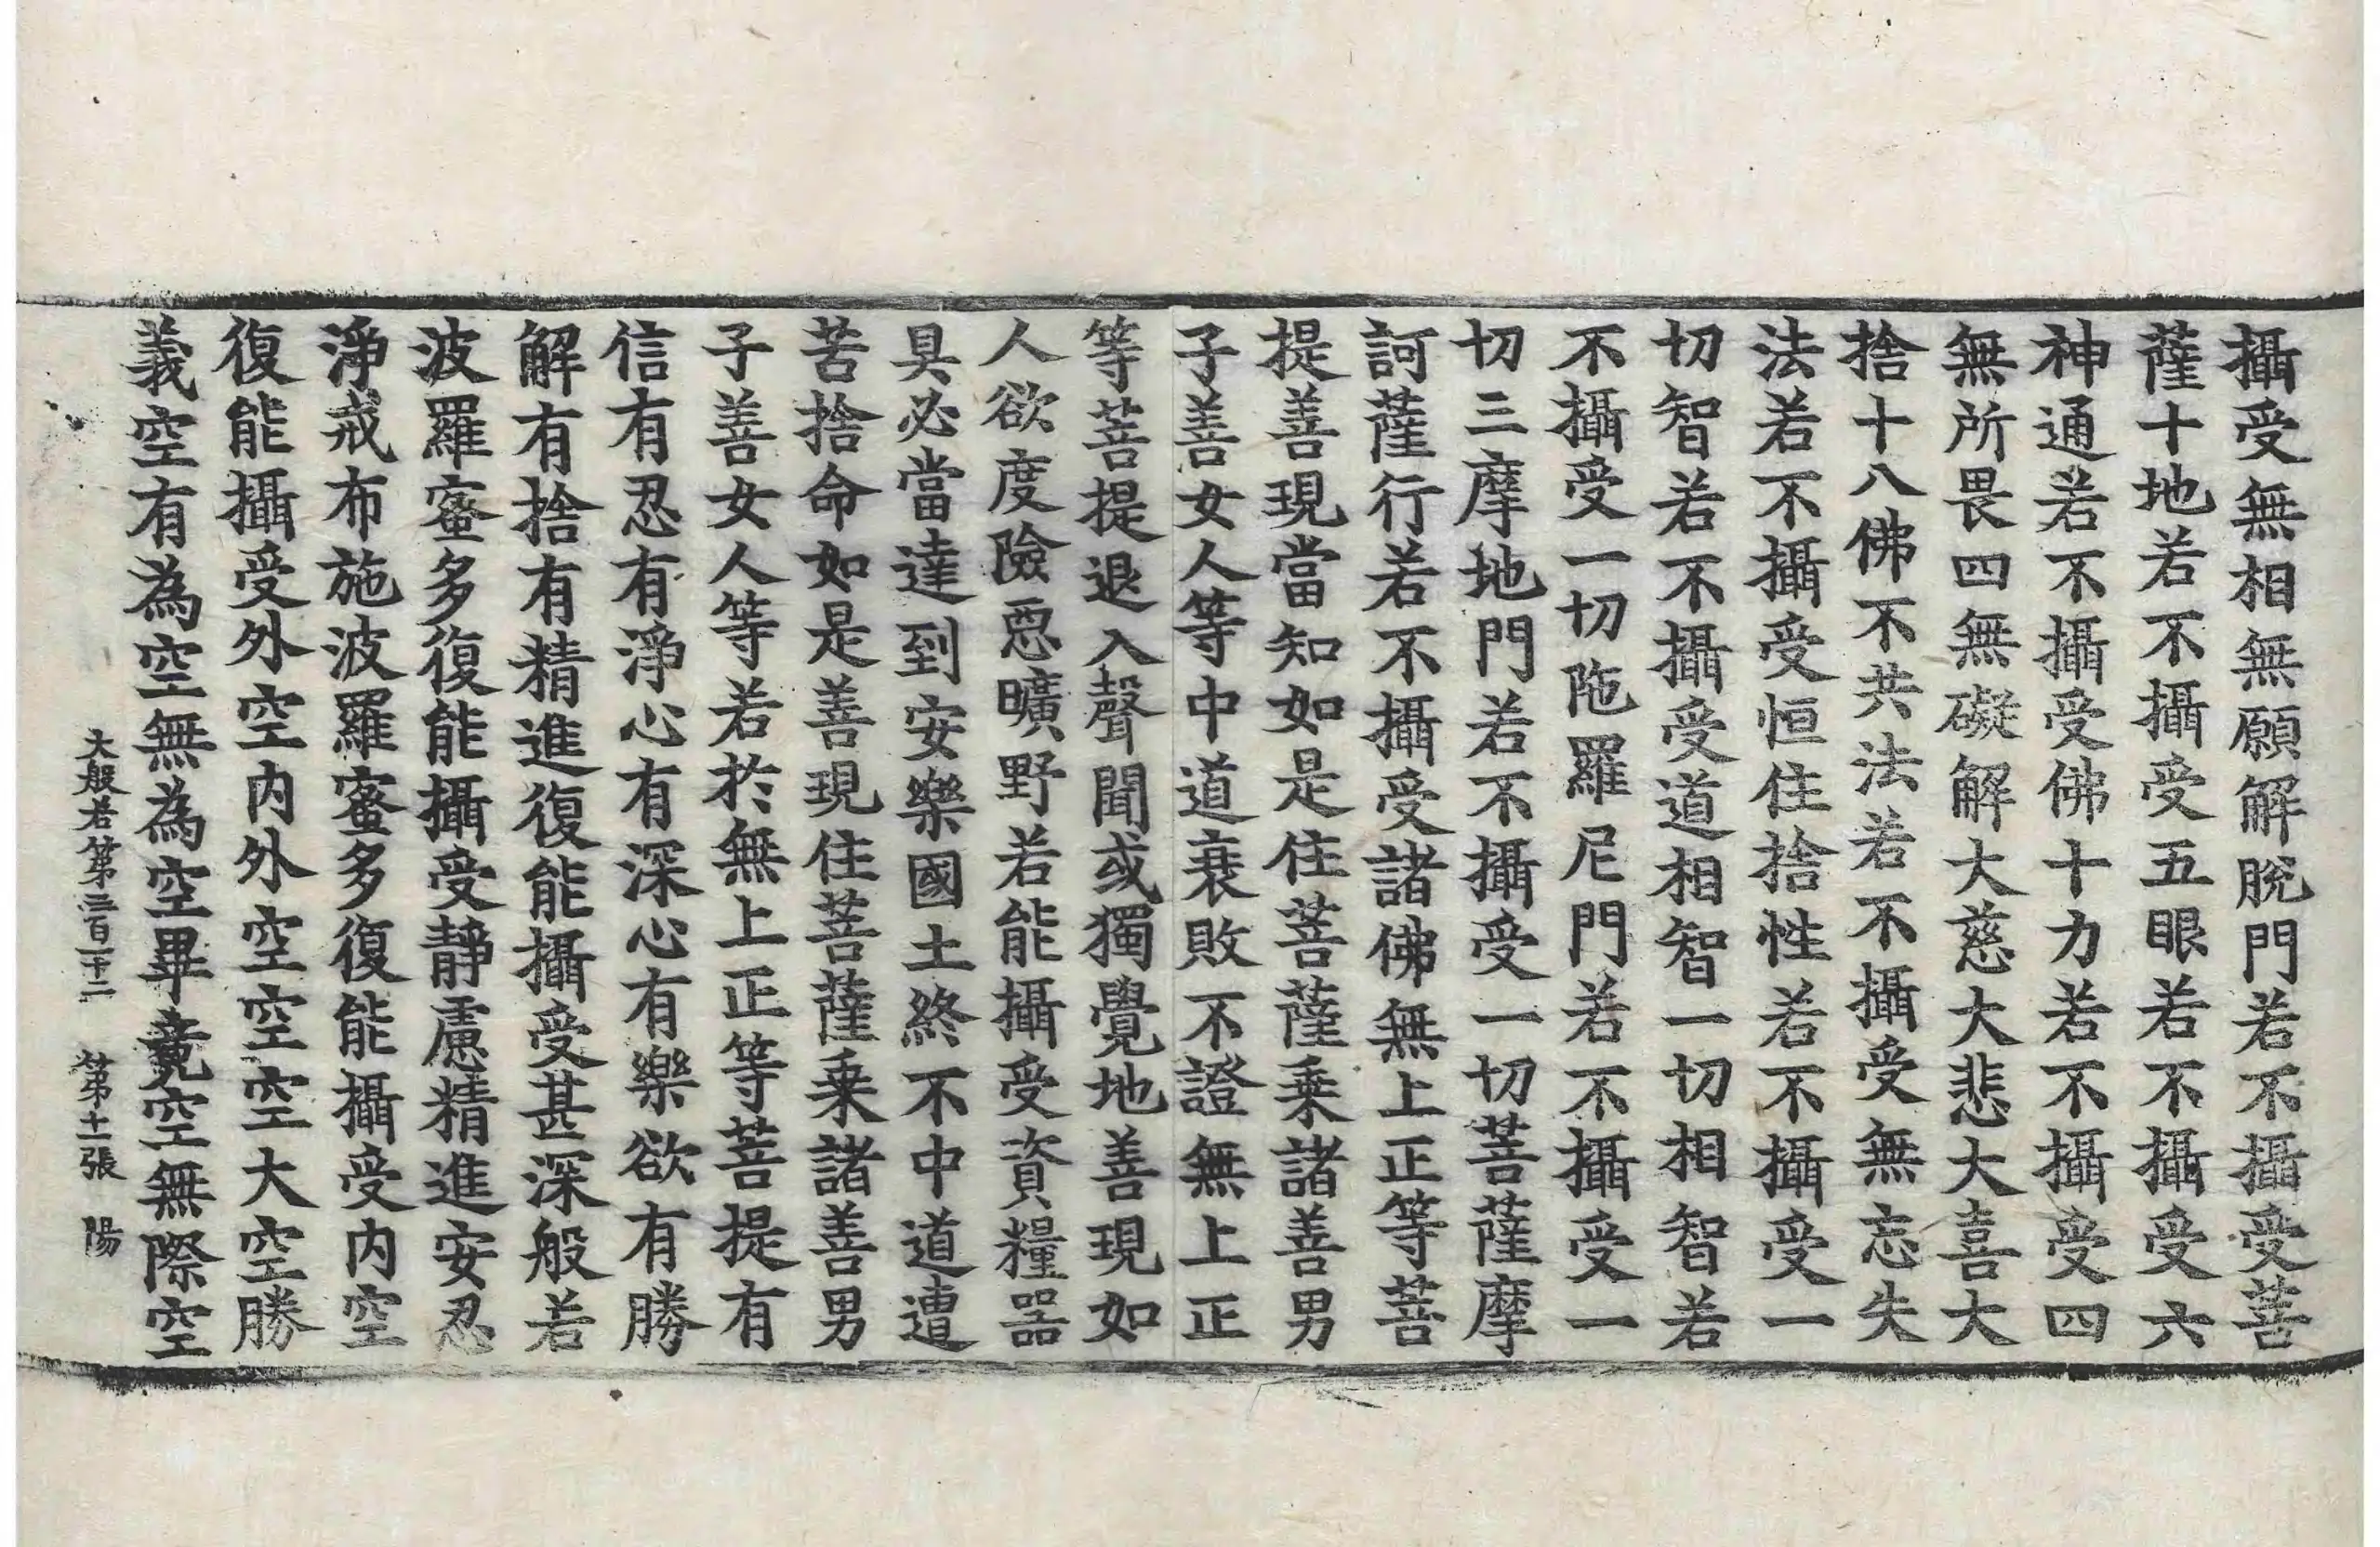 攝受無相無願解脫門若不攝受菩
薩十地若不攝受五眼若不攝受六
神通若不攝受佛十力若不攝受四
無所畏四無礙解大慈大悲大喜大
捨十八佛不共法若不攝受無忘失
法若不攝受恒住捨性若不攝受一
切智若不攝受道相智一切相智若
不攝受一切陁羅尼門若不攝受一
切三摩地門若不攝受一切菩薩摩
訶薩行若不攝受諸佛無上正等菩
提善現當知如是住菩薩乗諸善男
子善女人等中道衰敗不證無上正
等菩提退入聲聞或獨覺地善現如
人欲度險惡曠野若能攝受資糧器
具必當達到安樂國土終不中道遭
苦捨命如是善現住菩薩乗諸善男
子善女人等若於無上正等菩提有
信有忍有淨心有深心有樂欲有勝
解有捨有精進復能攝受甚深般若
波羅蜜多復能攝受靜慮精進安忍
淨戒布施波羅蜜多復能攝受內空
復能攝受外空內外空空空大空勝
義空有為空無為空畢竟空無際空
大般若第三百一十二 第十一張 陽